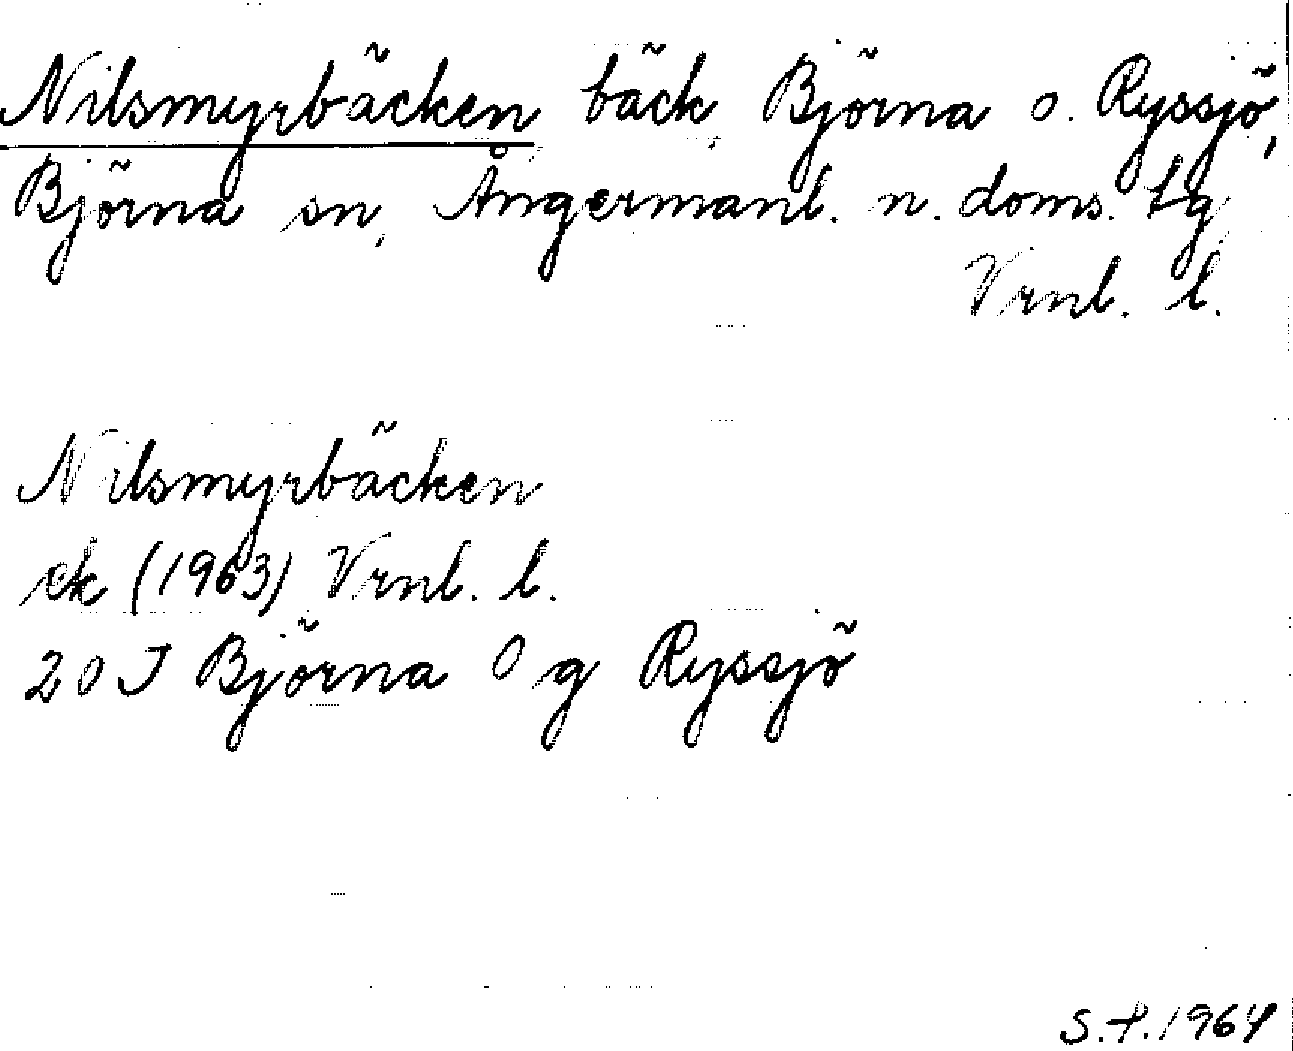 Nilsmyrbäcken bäck, Björna o. Ryssjö,
Björna sn, Ångermanl. n. doms. tg
Vrnl. l.
Nilsmyrbäcken
ek (1963) Vrnl. l.
20 J Björna 0 g Ryssjö
S.P. 1964